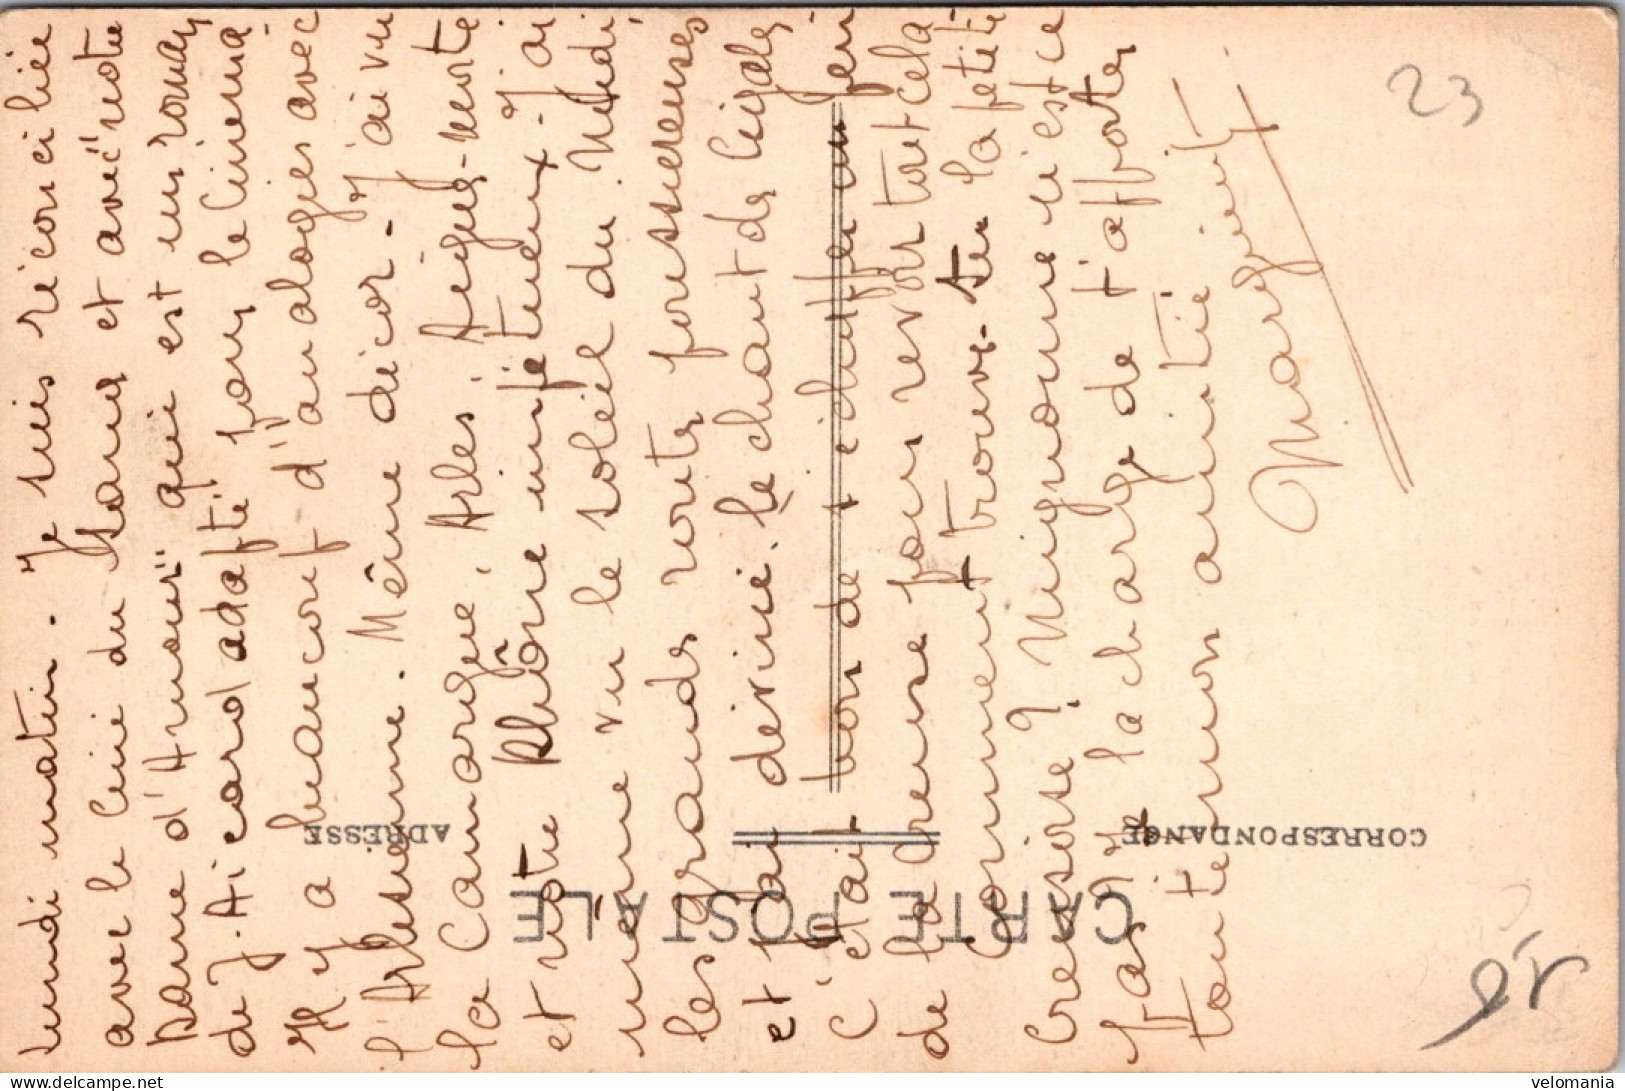 lundi matin. Je suis réconciliée
avec le ciné du Stand et avec "notre
Dame d'Amour" qui est un roman
de J. Aicard adapté pour le Cinéma
Il y a beaucoup d'analogies avec
l'Arlésienne. Même décor - J'ai vu
la Camargue, Arles, Aigues-morte
et notre Rhône impétueux - J'ai
même vu le soleil du Midi
les grands routes poussiéreuses
et j'ai deviné le chant des Cigales
C'était bon de s'échauffer au feu
de la reine pour revoir tout cela
Comment trouves-tu la petite
Creusoise ? Mignonne n'est ce
pas ? Je la charge de t'apporter
toute mon amitié
Marguerite
CARTE POSTALE
CORRESPONDANCE
ADRESSE
23
velomania